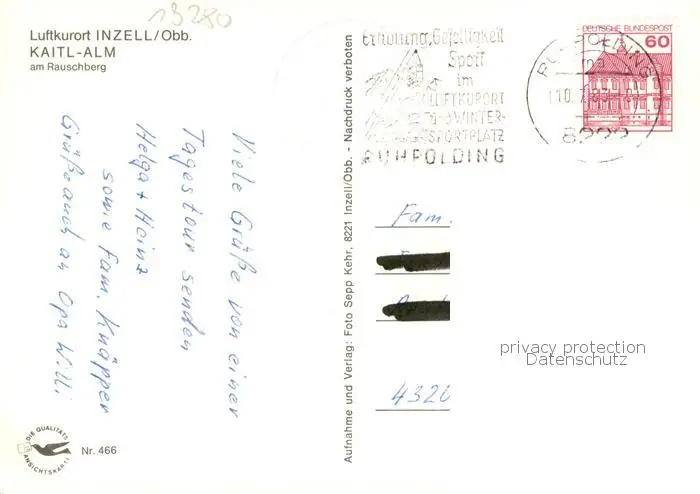 13280
Luftkurort INZELL/Obb.
KAITL-ALM
am Rauschberg
Viele Grüße von einer
Tagestour senden
Helga + Heinz
sowie Fam. Knäpper
Grüße auch an Opa Willi
DIE QUALITÄTS
ANSICHTSKARTE
Nr. 466
Aufnahme und Verlag: Foto Sepp Kehr, 8221 Inzell/Obb. - Nachdruck verboten
Erholung, Geselligkeit
Sport
im
LUFTKURORT
WINTER-
SPORTPLATZ
RUHPOLDING
RUHPOLDING
DEUTSCHE BUNDESPOST
60
Fam.
432
privacy protection
Datenschutz